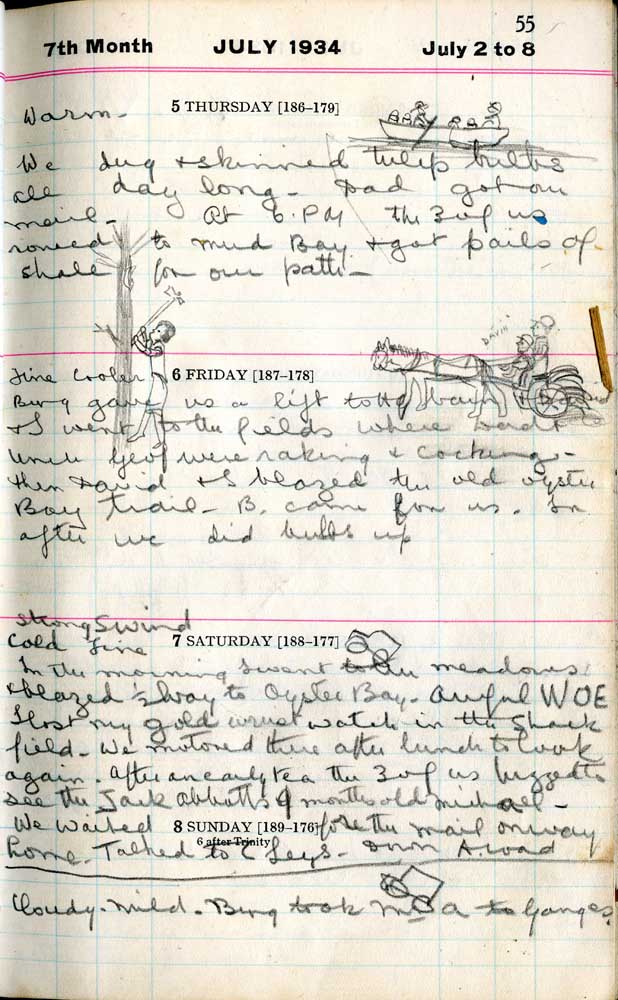 55
7th Month JULY 1934 July 2 to 8
5 THURSDAY [186–179]
Warm –
We dug & skinned tulip bulbs
all day long – Dad got our
mail – At 6 PM the 3 of us
rowed to Mud Bay & got pails of
shale for our path –
DAVID
6 FRIDAY [187–178]
Fine Cooler
Berg gave us a lift to the bay & David
& I went to the fields where Dad &
Uncle Geof were raking & cocking –
then David & I blazed the old oyster
Bay trail – B. came for us. In
after we did bulbs up
Strong S wind
Cold Fine
7 SATURDAY [188–177]
In the morning I went to the meadows
& blazed ½ way to Oyster Bay – awful WOE
I lost my gold wrist watch in the Shack
field – We motored there after lunch to look
again. After an early tea the 3 of us buzzed to
see the Jack Abbotts 4 months old Michael –
We waited for the mail on way
8 SUNDAY [189–176]
6 after Trinity
home. Talked to C Leys – D
Cloudy. Mild. Berg took M a to Ganges.